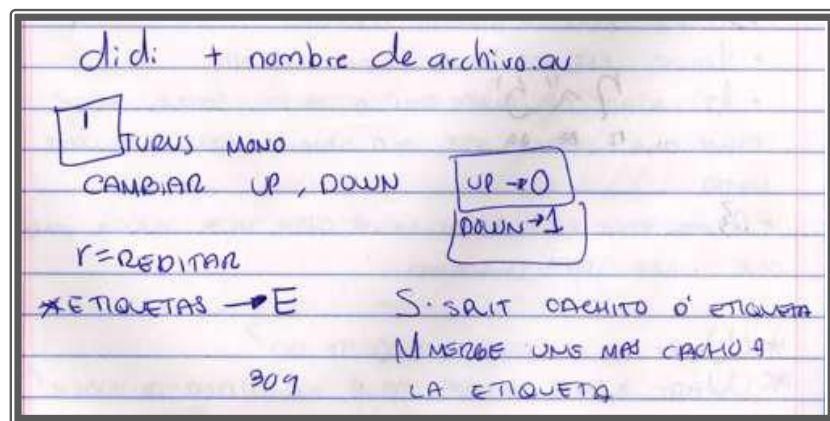 didi + nombre de archivo.au
1
TURUS MONO
CAMBIAR UP, DOWN
UP → 0
DOWN → 1
r = REDITAR
* ETIQUETAS → E
S. SPLIT CACHITO O' ETIQUETA
M MERGE UNE MAS CACHO A
LA ETIQUETA
309